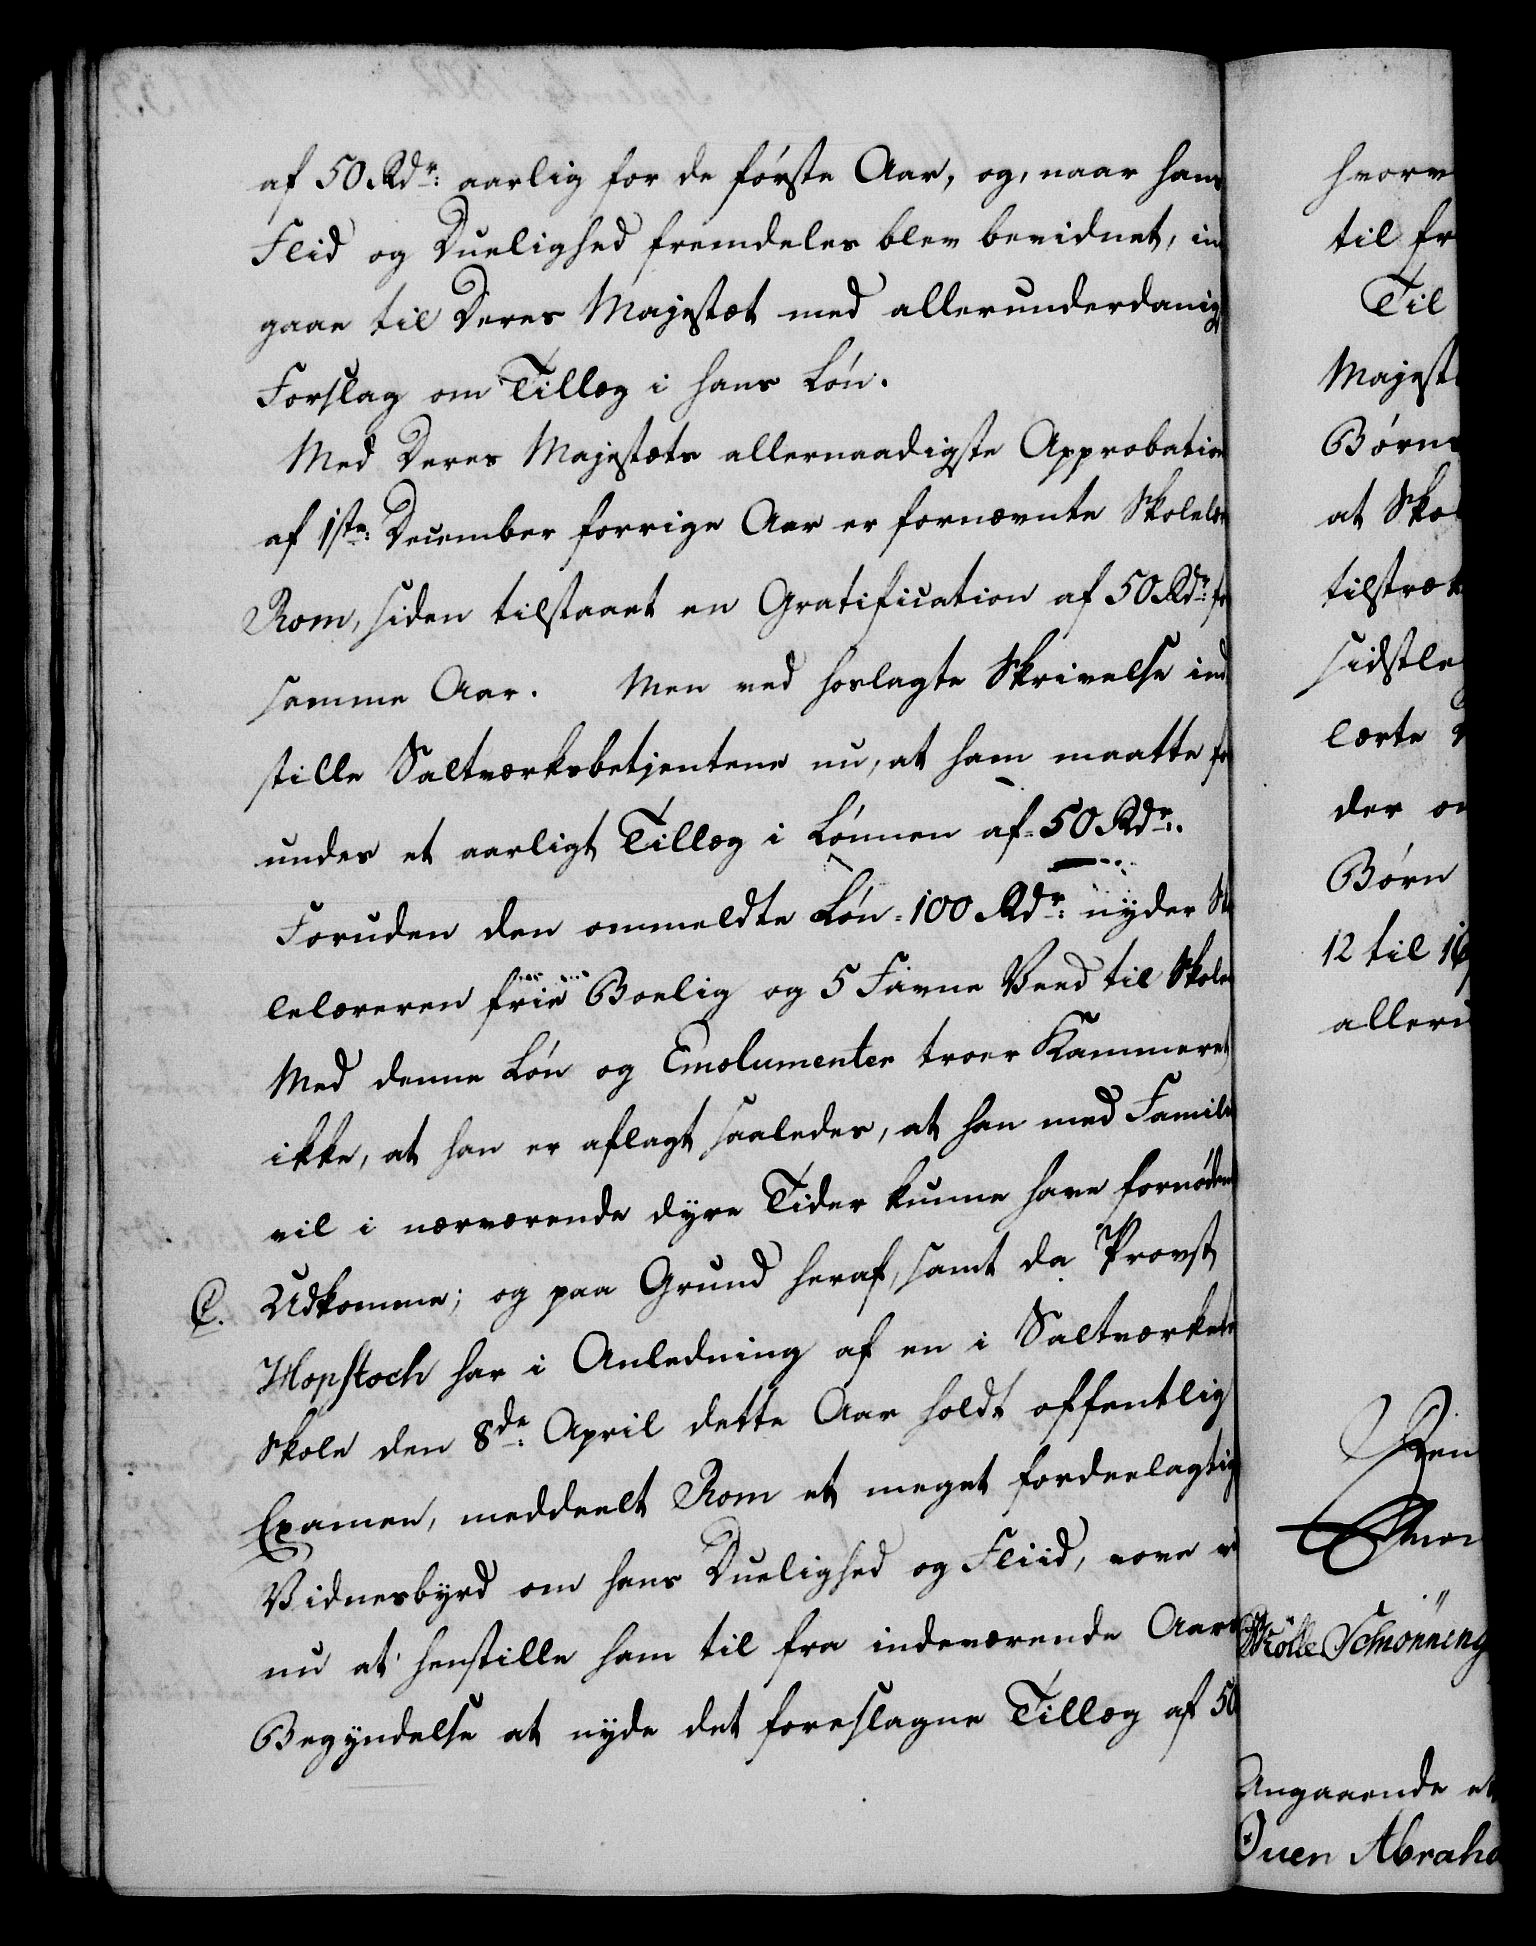 af 50 Rdr: aarlig for de første Aar, og, naar hans
Flid og Duelighed fremdeles blev bevidnet, ind
gaae til Deres Majestæt med allerunderdanig
Forslag om Tillæg i hans Løn.
Med Deres Majestæts allernaadigste Approbation
af 1ste: December forrige Aar er fornævnte Skolelær
Rom, siden tilstaaet en Gratification af 50 Rdr: for
samme Aar. Men ved hoslagte Skrivelse ind
stille Saltværksbetjentene nu, at ham maatte for
undes et aarligt Tillæg i Lønnen af 50 Rdr:.
Foruden den ommeldte Løn = 100 Rdr: nyder Sko
lelæreren frie Boelig og 5 Favne Veed til Skolen
Med denne Løn og Emolumenter troer Kammeret
ikke, at han er aflagt saaledes, at han med Famili
vil i nærværende dyre Tider kunne have fornøden
C. Udkomme; og paa Grund heraf, samt da Provst
Hopstoch har i Anledning af en i Saltværkets
Skole den 8de: April dette Aar holdt offentlig
Examen, meddeelt Rom et meget fordeelagtig
Vidnesbyrd om hans Duelighed og Fliid, vove vi
nu at henstille ham til fra indeværende Aars
Begyndelse at nyde det foreslagne Tillæg af 50
hvorv
til fr
Til
Majest
Børne
at Skol
tilstræk
sidstle
lærte
der om
Børn
12 til 16
alleru
Ren
Schønning
Angaaende et
Ouen Abraha